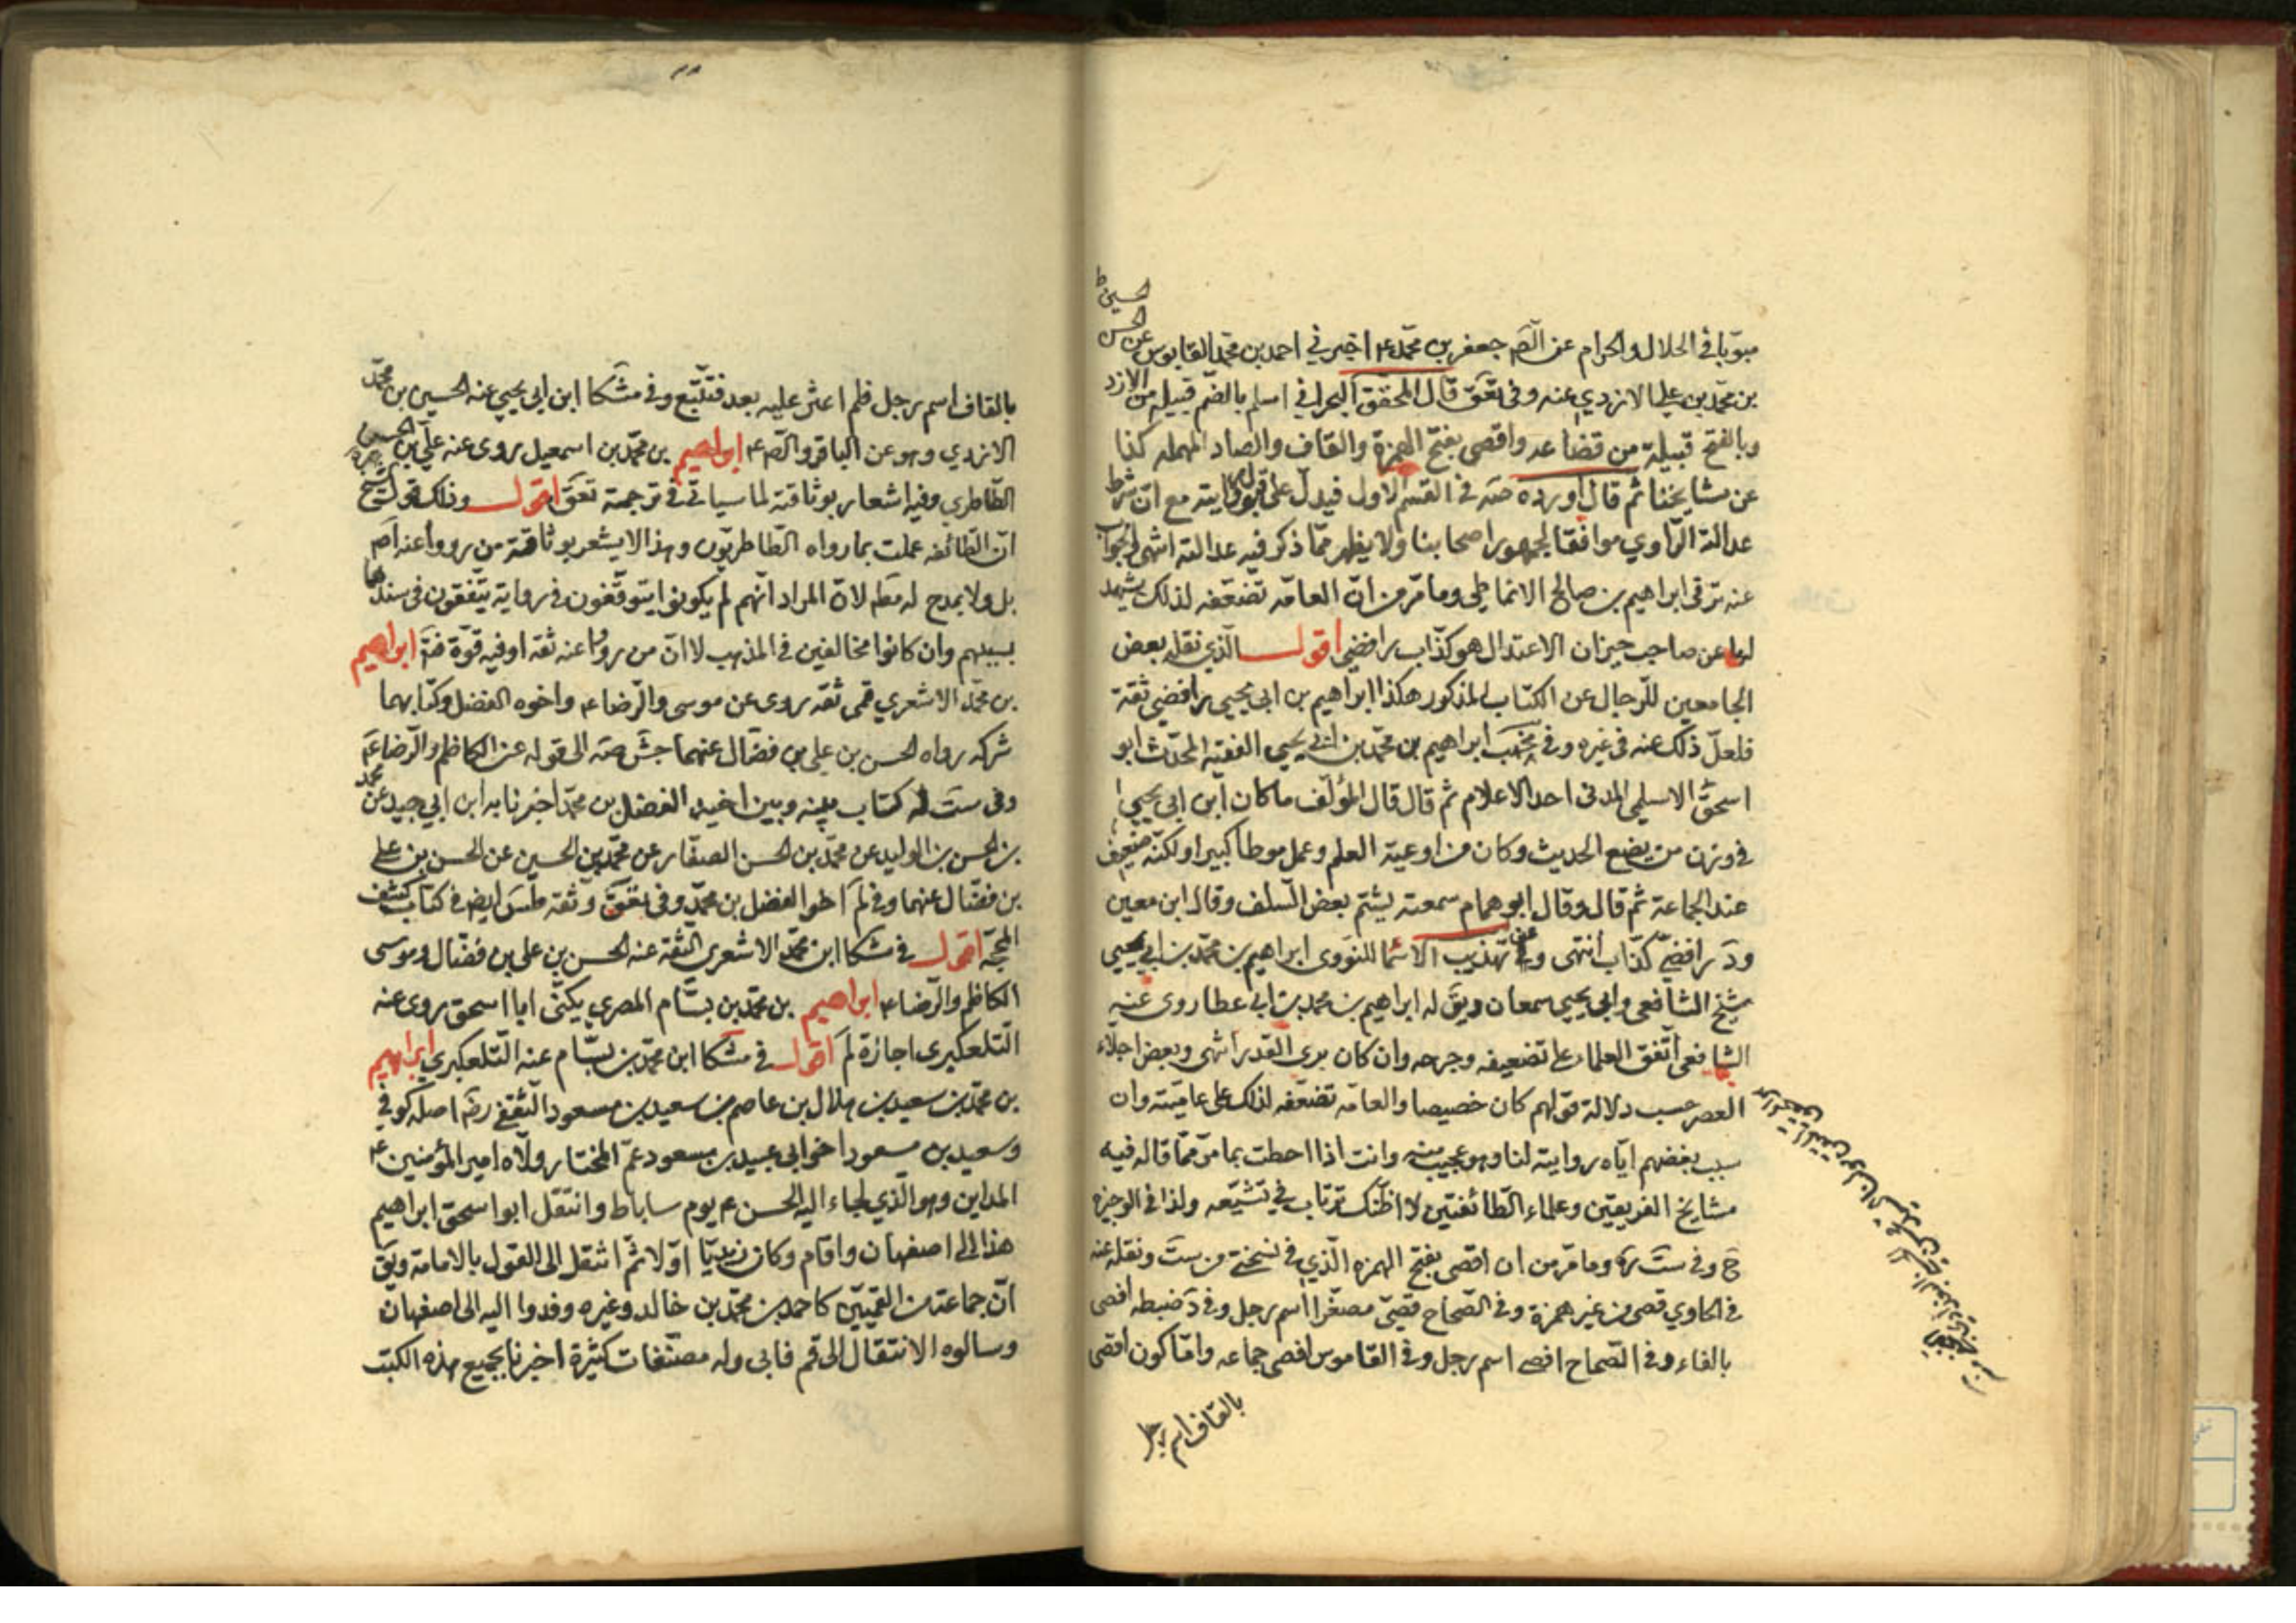 مبوّبا في الحلال والحرام عن الصّم جعفر بن محمّد ع اخبرني احمد بن محمّد القابوسي عن الحسن
الحسين ط
بن محمّد بن علي الازدي عنه وفي تعق قال المحقق البحراني اسلم بالضم قبيلة من الازد
وبالفتح قبيلة من قضاعه واقصى بفتح الهمزة والقاف والصاد المهمله كذا
عن مشايخنا ثم قال اورده صه في القسم الاول فيدل على قبول روايته مع ان شرط
عدالة الراوي موافقا لجمهور اصحابنا ولا يظهر ممّا ذكر فيه عدالته انتهى الجواب
عنه ترقى ابراهيم بن صالح الانماطي ومامر من انّ العامّه تضعّفه لذلك يشهد
لها عن صاحب ميزان الاعتدال هو كذّاب رافضي اقول الّذي نقله بعض
الجامعين للرّجال عن الكتاب المذكور هكذا ابراهيم بن ابي يحيى رافضي ثقة
فلعلّ ذلك عنه في غيره وفي مخهب ابراهيم بن محمّد بن ابي يحيى الفقيه المحدّث ابو
اسحق الاسلمي المدني احد الاعلام ثم قال قال المؤلّف ماكان ابن ابي يحيى
في وزن من يضع الحديث وكان من اوعية العلم وعمل موطأ كبيرا ولكنّه ضعيف
عند الجماعة ثم قال وقال ابو همام سمعته يشتم بعض السّلف وقال ابن معين
ود رافضيّ كذّاب انتهى وعن تهذيب الاسما للنووى ابراهيم بن محمّد بن ابي يحيى
شيخ الشافعي وابي يحيى سمعان ويق له ابراهيم بن محمد بن ابي عطا روى عنه
الشافعي اتّفق العلماء على تضعيفه وجرحه وان كان يرى القدر انتهى وبعض اجلاء
العصر حسب دلالة قولهم كان خصيصا والعامّه تضعّفه لذلك على عاميّته وان
سبب بغضهم ايّاه روايته لنا وهو عجيب منه وانت اذا احطت بما مرّ ممّا قاله فيه
مشايخ الفريقين وعلماء الطّائفتين لا اظنّك ترتاب في تشيّعه ولذا في الوجيزه
ح وفي ست ره ومامرّ من ان اقصى بفتح الهمزه الّذي في نسختي من ست ونقله عنه
في الحاوي قصى من غير همزة وفي الصّحاح قصيّ مصغّرا اسم رجل وفي د ضبطه افصى
بالفاء وفي الصّحاح افصى اسم رجل وفي القاموس افصى جماعه وامّا كون اقصى
بالقاف اسم رجل
بالقاف اسم رجل فلم اعثر عليه بعد فتتّبع وفي مشكا ابن ابي يحيى عنه الحسين بن محمّد
الازدي وهو عن الباقر والصّم ع ابراهيم بن محمّد بن اسمعيل روى عنه علي بن الحسن
الطّاطري وفيه اشعار بوثاقته لما سياتي في ترجمة تعق اقول وذلك قول الشيخ
انّ الطّائفه عملت بما رواه الطّاطريّون وهذا لا يشعر بوثاقة من رووا عنه اصم
بل ولا بمدح له مطم لانّ المراد انّهم لم يكونوا يتوقّفون في رواية يتّفقون في سندها
بسببهم وان كانوا مخالفين في المذهب لا انّ من رووا عنه ثقه او فيه قوّة فتم ابراهيم
بن محمّد الاشعري قمى ثقه روى عن موسى والرّضا ع واخوه الفضل وكتابهما
شركه رواه الحسن بن علي بن فضّال عنهما جش صه الى قوله عن الكاظم والرّضا ع
وفي ست له كتاب بينه وبين اخيه الفضل بن محمّد اخبرنا به ابن ابي جيد عن محمد
بن الحسن بن الوليد عن محمّد بن الحسن الصفّار عن محمّد بن الحسين عن الحسن بن علي
بن فضّال عنهما وفي لم اخو الفضل بن محمّد وفي تعق وثقه ايض في كتاب كشف
المحجّة اقول في مشكا ابن محمّد الاشعرى الثّقة عنه الحسن بن علي بن فضّال وموسى
الكاظم والرّضا ع ابراهيم بن محمّد بن بسّام المصري يكنّى ابا اسحق روى عنه
التّلعكبرى اجازة لم اقول في مشكا ابن محمّد بن بسّام عنه التّلعكبري ابراهيم
بن محمّد بن سعيد بن هلال بن عاصم بن سعيد بن مسعود الثّقفي رضه اصله كوفي
وسعيد بن مسعود اخو ابي عبيد بن مسعود عمّ المختار ولّاه امير المؤمنين ع
المداين وهو الّذي لجاء اليه الحسن ع يوم ساباط وانتقل ابو اسحق ابراهيم
هذا الى اصفهان واقام وكان زيديّا اوّلا ثمّ انتقل الى القول بالامامة ويق
انّ جماعة من القميّين كاحمد بن محمّد بن خالد وغيره وفدوا اليه الى اصفهان
وسالوه الانتقال الى قم فابى وله مصنّفات كثيرة اخبرنا بجميع هذه الكتب